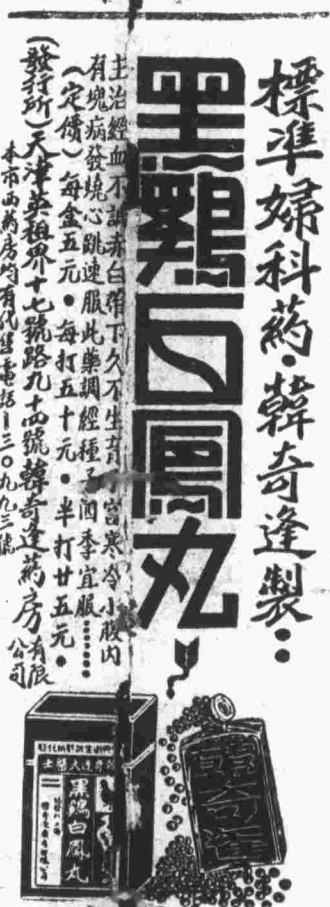 標準婦科药·韓奇逢製：
黑鷄白鳳丸
主治經血不調赤白帶下久不生育子宮寒冷小腹內
有塊病發燒心跳速服此藥調經種子四季宜服……
（定價）每盒五元·每打五十元·半打廿五元·
（發行所）天津英租界十七號路九十四號韓奇逢药房有限公司
本市西药房均有代售電話三〇九九三號
韓奇逢
黑鷄白鳳丸